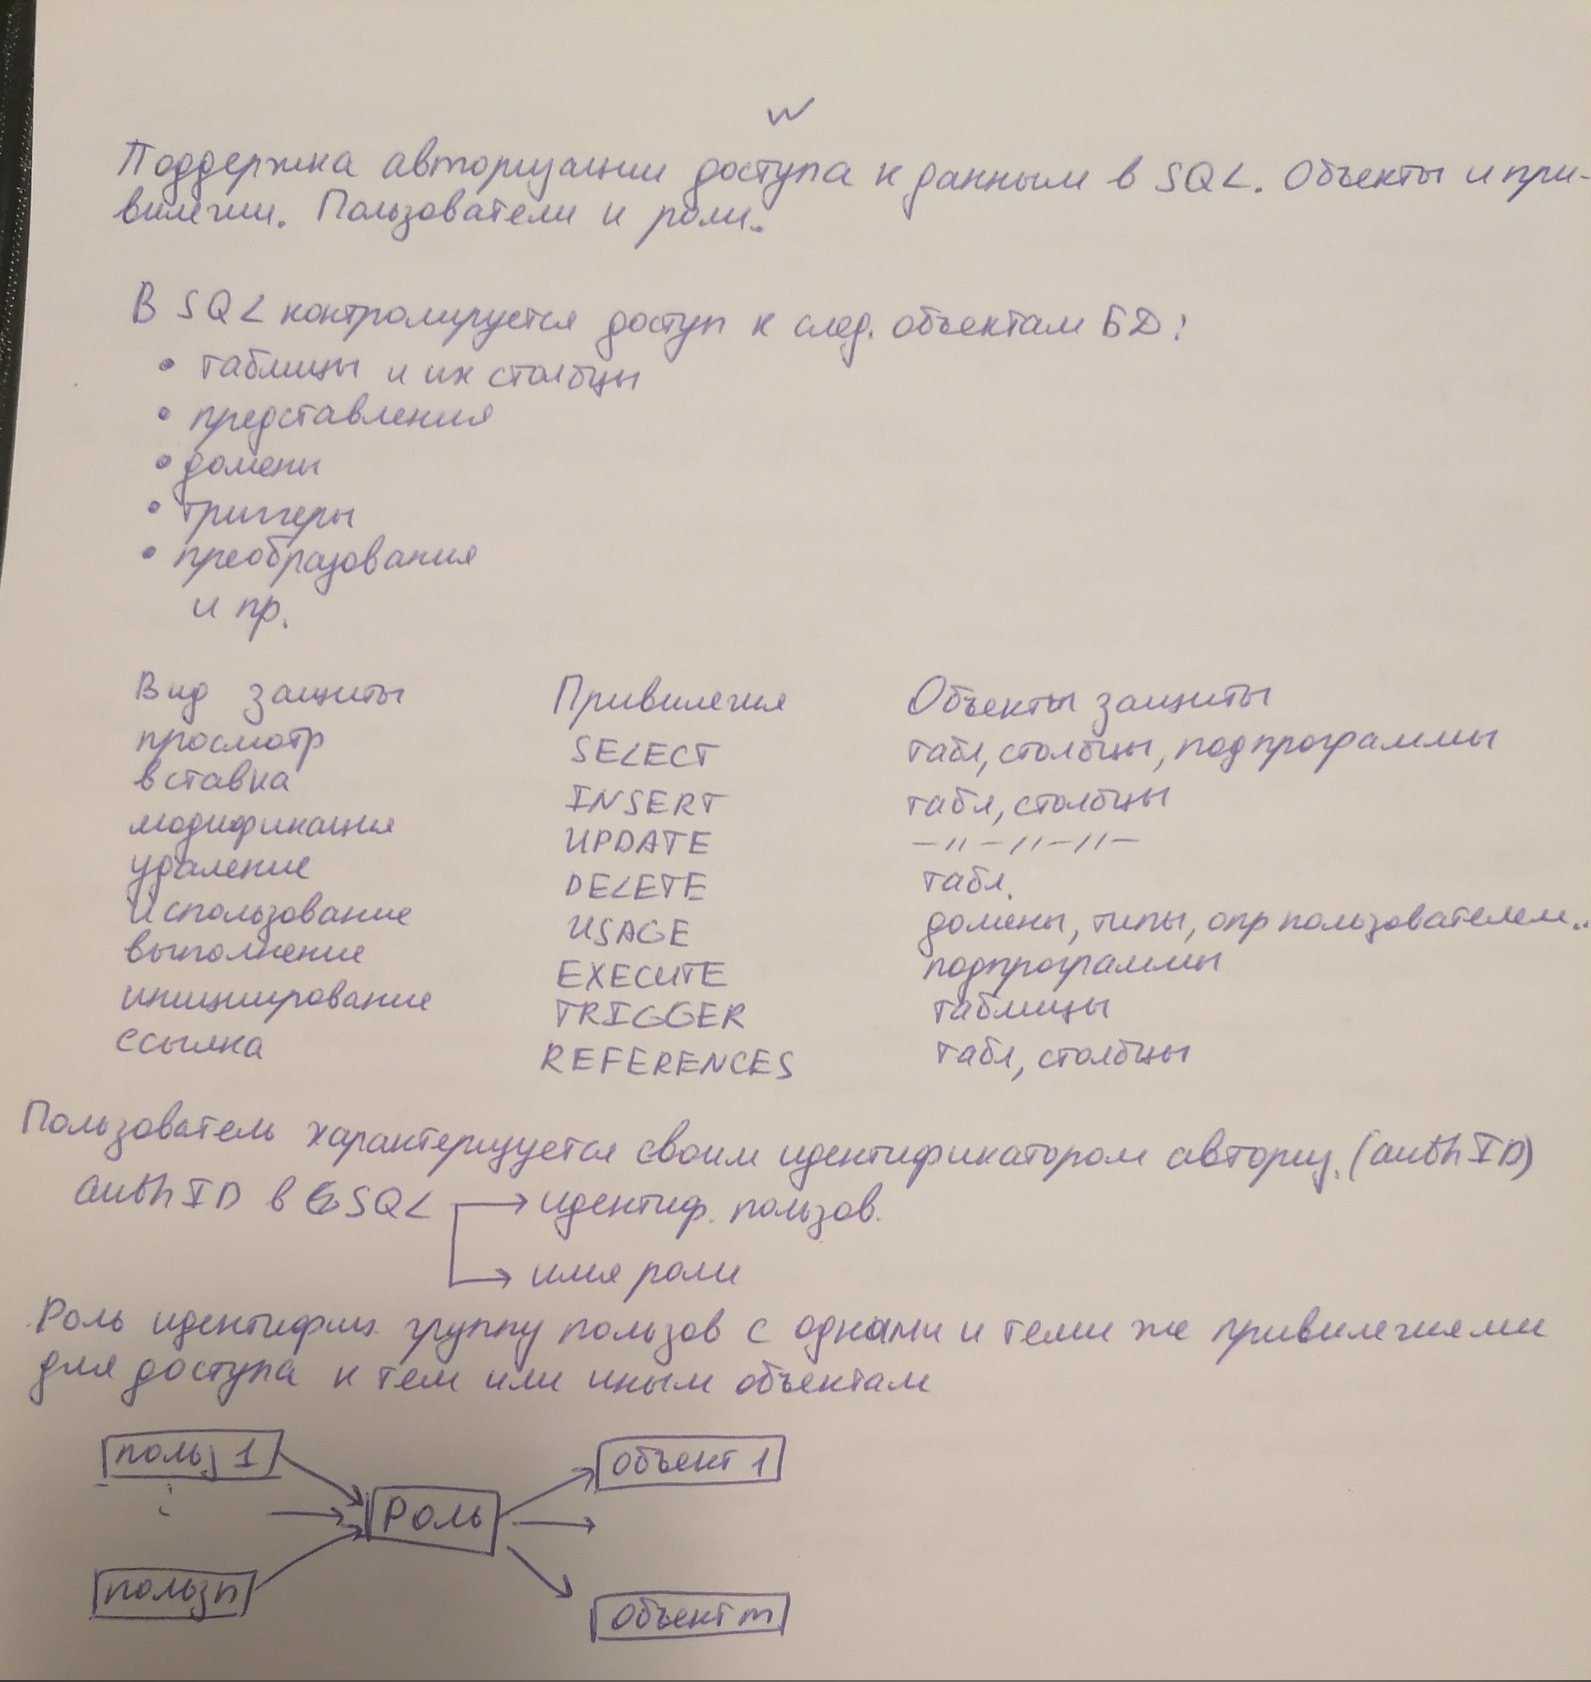 Поддержка авторизации доступа к данным в SQL. Объекты и при-
вилегии. Пользователи и роли.
В SQL контролируется доступ к след. объектам БД:
• таблицы и их столбцы
• представления
• домены
• триггеры
• преобразования
и пр.
Вид защиты Привилегия Объекты защиты
просмотр SELECT табл, столбцы, подпрограммы
вставка INSERT табл, столбцы
модификация UPDATE –//–//–//–
удаление DELETE табл.
использование USAGE домены, типы, опр пользователем..
выполнение EXECUTE подпрограммы
инициирование TRIGGER таблицы
ссылка REFERENCES табл, столбцы
Пользователь характеризуется своим идентификатором авториз. (authID)
authID в SQL → идентиф. пользов.
→ имя роли
Роль идентифиц. группу пользов с одними и теми же привилегиями
для доступа к тем или иным объектам
польз 1 объект 1
Роль
польз n объект m